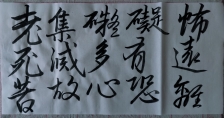 怖遠離
礙有恐
礙多心
集滅故
老死苦